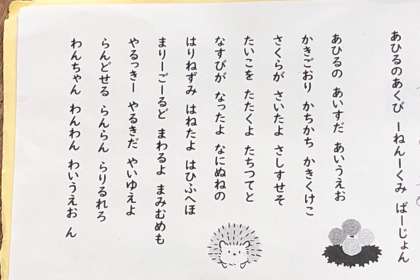 あひるのあくび ーねんーくみ ばーじょん
あひるの あいすだ あいうえお
かきごおり かちかち かきくけこ
さくらが さいたよ さしすせそ
たいこを たたくよ たちつてと
なすびが なったよ なにぬねの
はりねずみ はねたよ はひふへほ
まりーごーるど まわるよ まみむめも
やるっきー やるきだ やいゆえよ
らんどせる らんらん らりるれろ
わんちゃん わんわん わいうえお ん